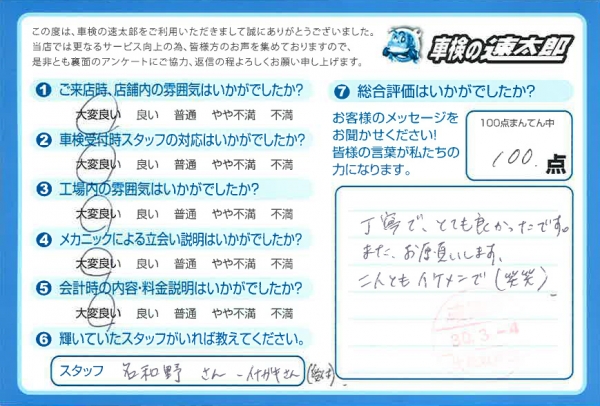 この度は、車検の速太郎をご利用いただきまして誠にありがとうございました。
当店では更なるサービス向上の為、皆様方のお声を集めておりますので、
是非とも裏面のアンケートにご協力、返信の程よろしくお願い申し上げます。
車検の速太郎
1 ご来店時、店舗内の雰囲気はいかがでしたか?
大変良い 良い 普通 やや不満 不満
2 車検受付時スタッフの対応はいかがでしたか?
大変良い 良い 普通 やや不満 不満
3 工場内の雰囲気はいかがでしたか?
大変良い 良い 普通 やや不満 不満
4 メカニックによる立会い説明はいかがでしたか?
大変良い 良い 普通 やや不満 不満
5 会計時の内容・料金説明はいかがでしたか?
大変良い 良い 普通 やや不満 不満
6 輝いていたスタッフがいれば教えてください。
スタッフ 名和野 さん
7 総合評価はいかがでしたか?
お客様のメッセージを
お聞かせください!
皆様の言葉が私たちの
力になります。
100点まんてん中
100. 点
丁寧で、とても良かったです。
また、お願いします。
二人ともイケメンで(笑笑)
30.3.-4